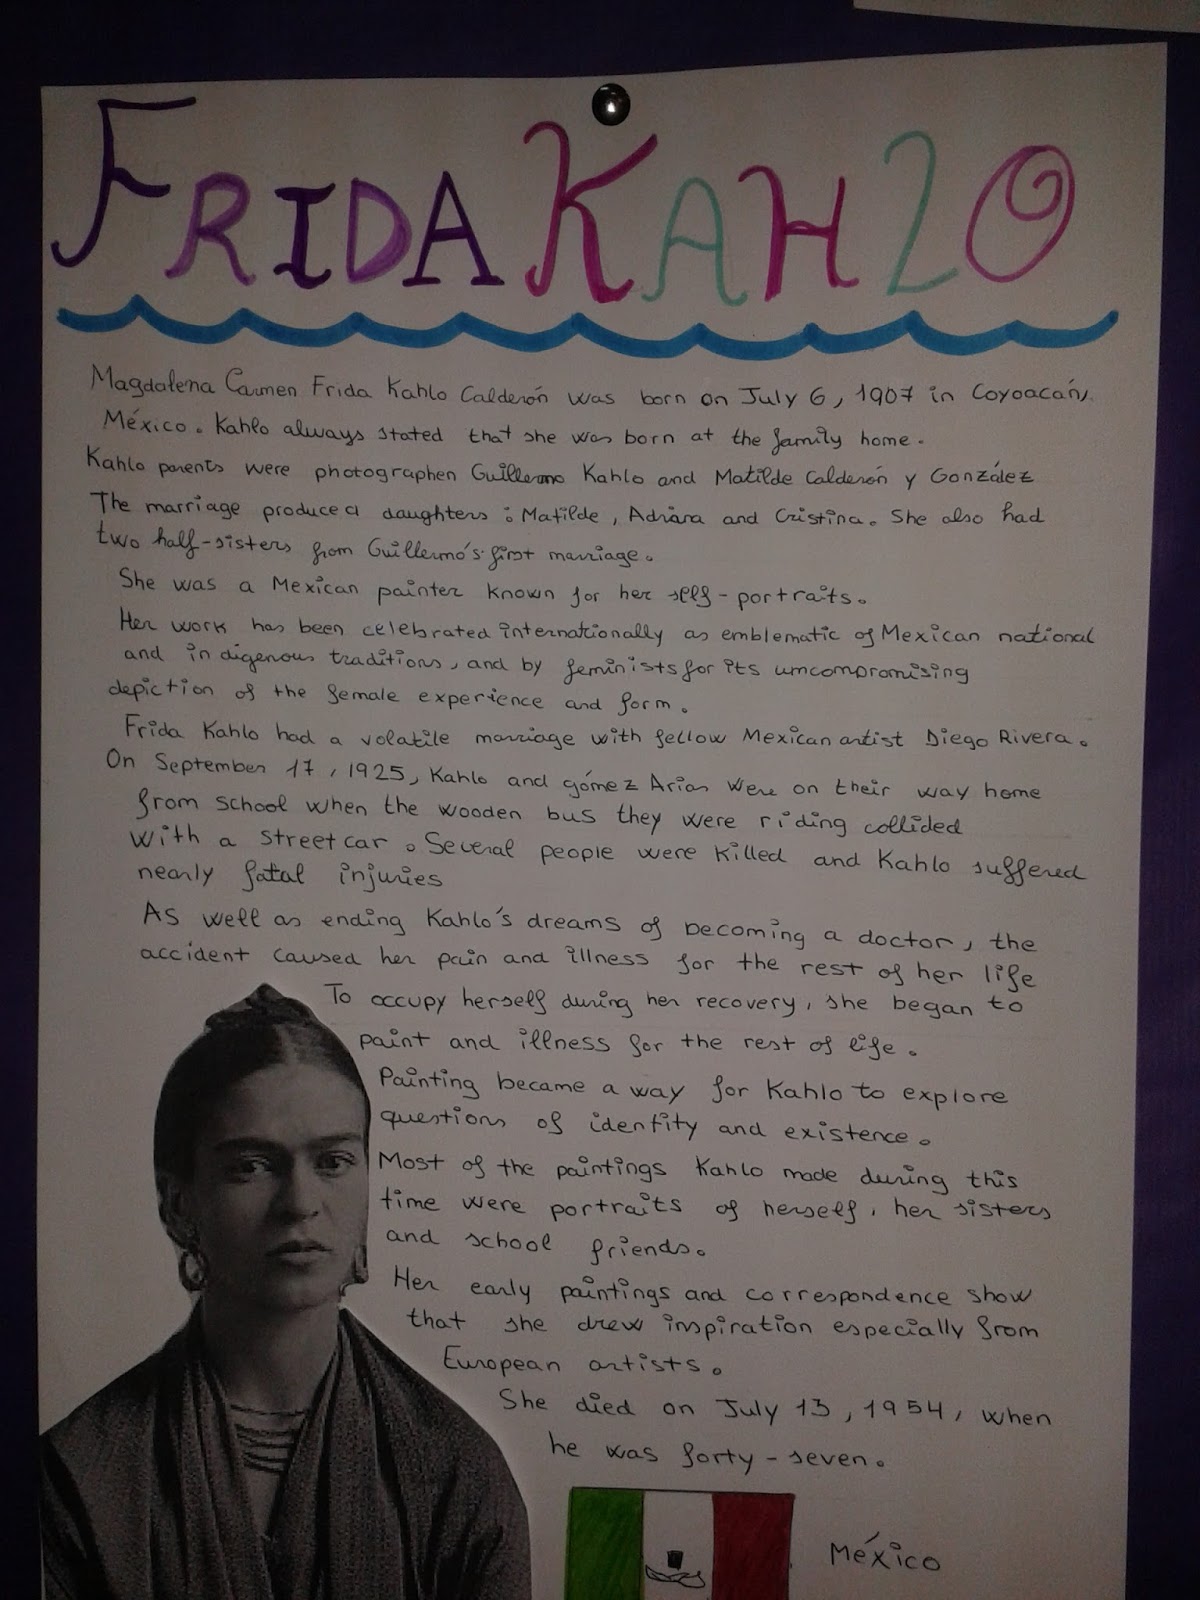 FRIDA KAHLO
Magdalena Carmen Frida Kahlo Calderón was born on July 6, 1907 in Coyoacán,
México. Kahlo always stated that she was born at the family home.
Kahlo parents were photographen Guillermo Kahlo and Matilde Calderón y González
The marriage produced daughters: Matilde, Adriana and Cristina. She also had
two half-sisters from Guillermo's first marriage.
She was a Mexican painter known for her self-portraits.
Her work has been celebrated internationally as emblematic of Mexican national
and indigenous traditions, and by feminists for its umcompromising
depiction of the female experience and form.
Frida Kahlo had a volatile marriage with fellow Mexican artist Diego Rivera.
On September 17, 1925, Kahlo and gómez Arias were on their way home
from school when the wooden bus they were riding collided
with a streetcar. Several people were killed and Kahlo suffered
nearly fatal injuries
As well as ending Kahlo's dreams of becoming a doctor, the
accident caused her pain and illness for the rest of her life
To occupy herself during her recovery, she began to
paint and illness for the rest of life.
Painting became a way for Kahlo to explore
questions of identity and existence.
Most of the paintings Kahlo made during this
time were portraits of herself, her sisters
and school friends.
Her early paintings and correspondence show
that she drew inspiration especially from
European artists.
She died on July 13, 1954, when
he was forty-seven.
México